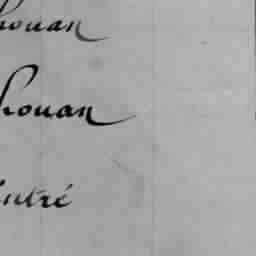 houan
houan
entré